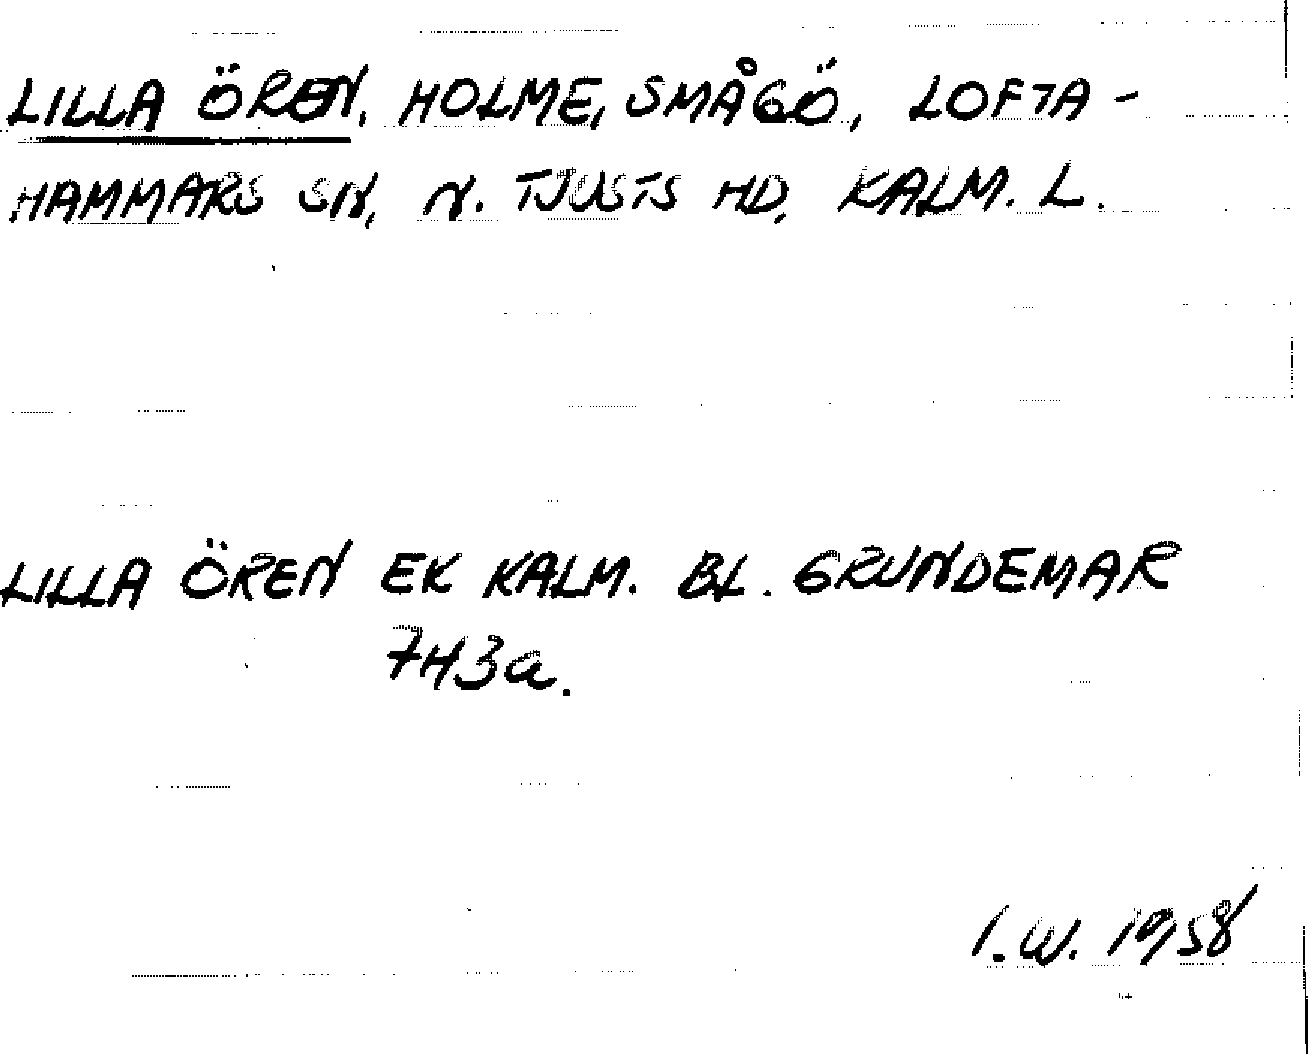 LILLA ÖREN, HOLME, SMÅGÖ, LOFTA-
HAMMARS SN, N. TJUSTS HD, KALM. L.
LILLA ÖREN EK KALM. BL. GRUNDEMAR
7H3a.
I.W. 1958